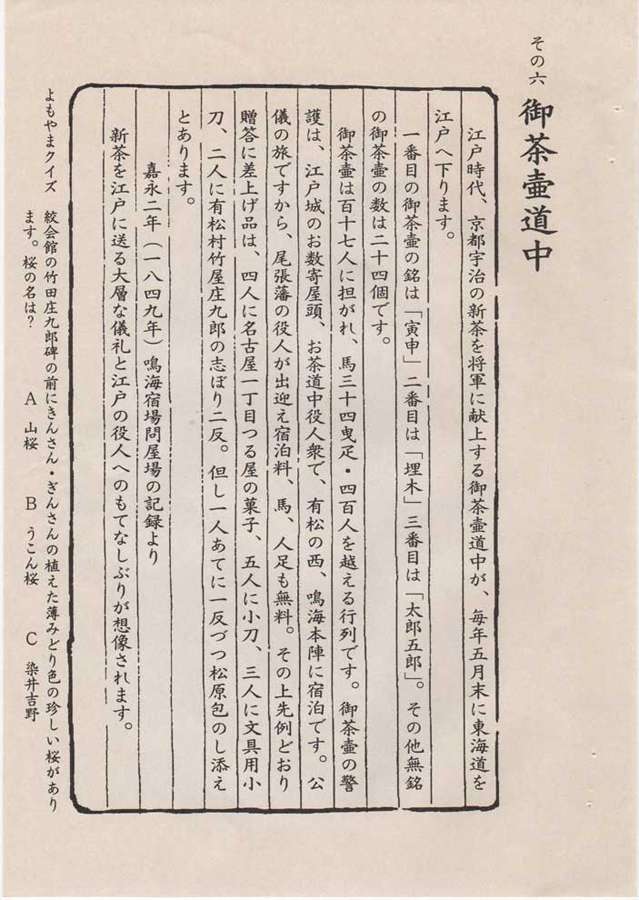 その六 御茶壷道中
江戸時代、京都宇治の新茶を将軍に献上する御茶壷道中が、毎年五月末に東海道を
江戸へ下ります。
一番目の御茶壷の銘は「寅申」二番目は「埋木」三番目は「太郎五郎」。その他無銘
の御茶壷の数は二十四個です。
御茶壷は百十七人に担がれ、馬三十四曳疋・四百人を越える行列です。御茶壷の警
護は、江戸城のお数寄屋頭、お茶道中役人衆で、有松の西、鳴海本陣に宿泊です。公
儀の旅ですから、尾張藩の役人が出迎え宿泊料、馬、人足も無料。その上先例どおり
贈答に差上げ品は、四人に名古屋一丁目つる屋の菓子、五人に小刀、三人に文具用小
刀、二人に有松村竹屋庄九郎の志ぼり二反。但し一人あてに一反づつ松原包のし添え
とあります。
嘉永二年（一八四九年）鳴海宿場問屋場の記録より
新茶を江戸に送る大層な儀礼と江戸の役人へのもてなしぶりが想像されます。
よもやまクイズ 絞会館の竹田庄九郎碑の前にきんさん・ぎんさんの植えた薄みどり色の珍しい桜があり
ます。桜の名は？ A 山桜 B うこん桜 C 染井吉野